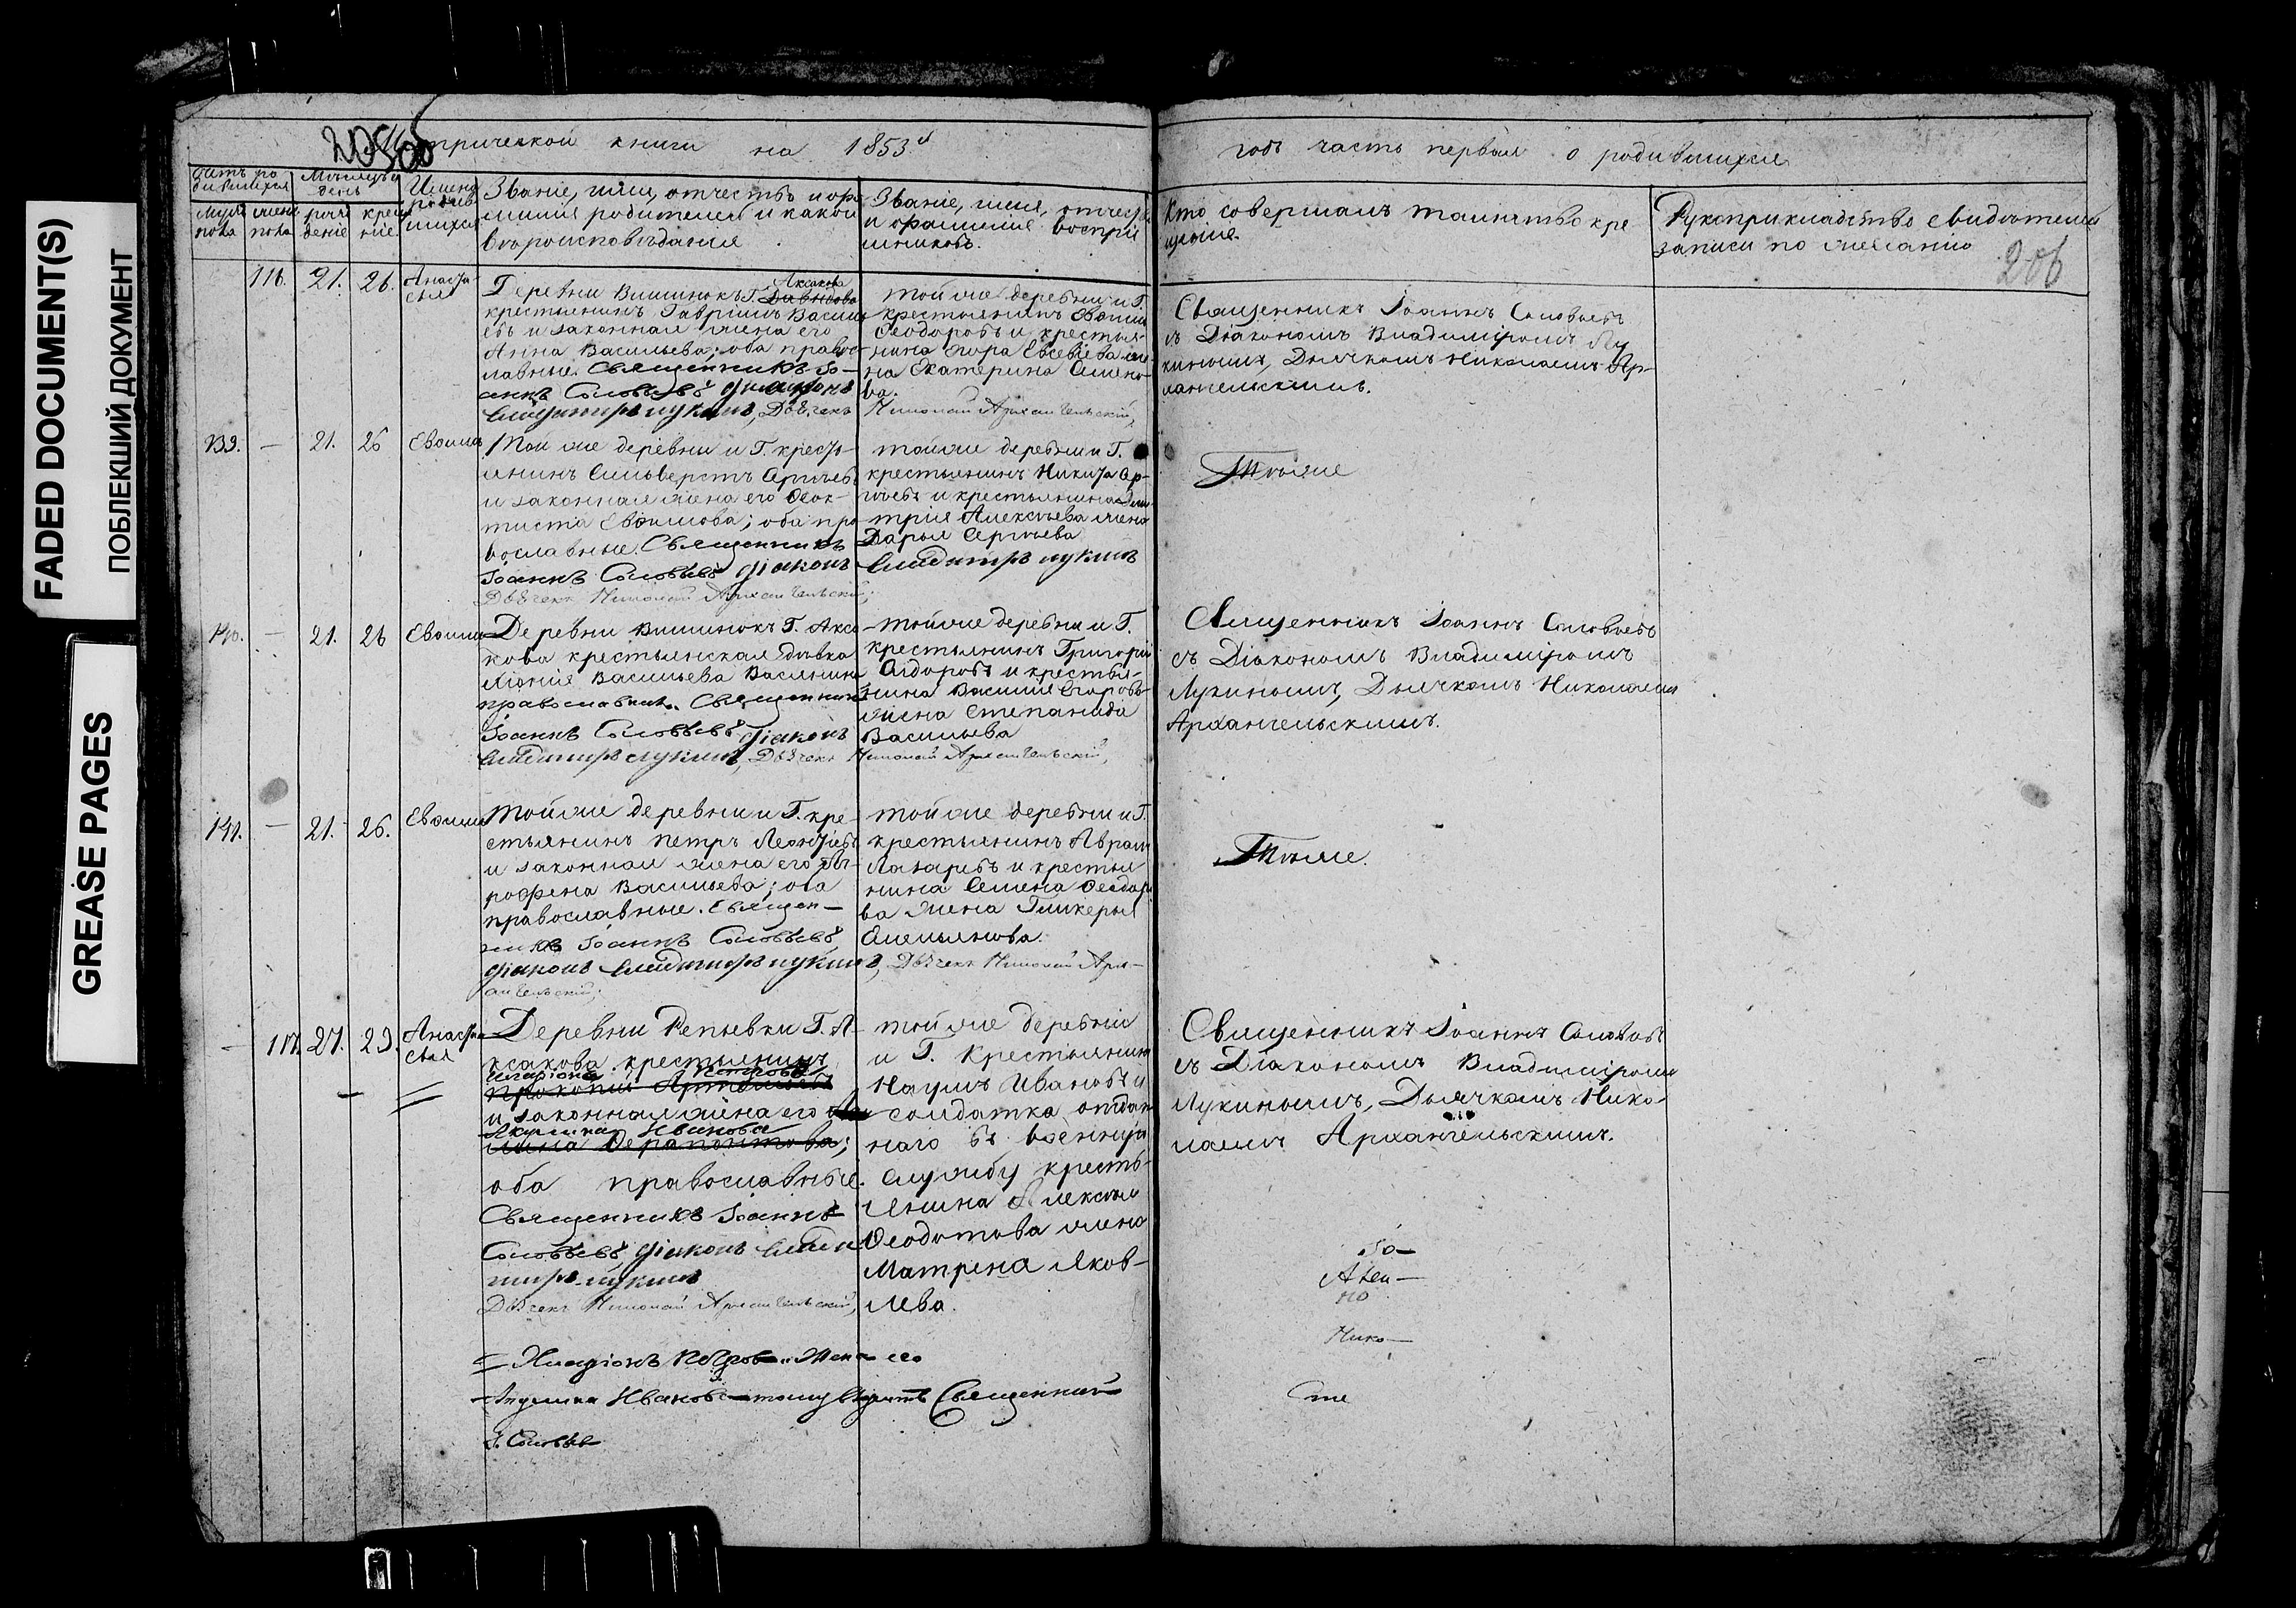 FADED DOCUMENT(S)
ПОБЛЕКШИЙ ДОКУМЕНТ
GREASE PAGES
Метрической книги на 1853й
годъ часть первая о родившихся
206
Мѣсяцъ и день
Имена родившихся
Званіе, имя, отчество и фамилія родителей и какой вѣроисповѣданія
Званіе, имя, отчество и фамилія воспріемниковъ.
Кто совершалъ таинство крещенія
Рукоприкладство свидѣтелей записи по желанію
116. 21. 26. Анастасья
Аксакова
Деревни Вишнокъ Г. Давыдова
крестьянинъ Гавріилъ Василь-
евъ и законная жена его
Анна Васильева; оба право-
славные. Священникъ Іо-
аннъ Соловьевъ Діаконъ
Владимиръ Лукинъ, Дьячекъ Николай Архангельскій,
тойже деревни и Г.
крестьянинъ Евѳимій
Ѳеодоровъ и крестья-
нина Егора Евсевіева же-
на Екатерина Семено-
ва.
Священникъ Іоаннъ Соловьевъ
съ Діакономъ Владиміромъ Лу
кинымъ, Дьячкомъ Николаемъ Ар-
хангельскимъ.
139. — 21. 26 Евѳимій
Той же деревни и Г. кресть-
янинъ Сильверстъ Сергѣевъ
и законная жена его Ѳеок-
тиста Евѳимова; оба пра-
вославные. Священникъ
Іоаннъ Соловьевъ Діаконъ Владимиръ Лукинъ
Дьячекъ Николай Архангельскій;
тойже деревни и Г.
крестьянинъ Никита Сер-
гѣевъ и крестьянина Дми-
трія Алексѣева жена
Дарья Сергѣева
Тѣже
140. — 21. 26 Евѳимій
Деревни Вишнокъ Г. Акса
кова крестьянская дѣвка
Васильева
православная. Священникъ
Іоаннъ Соловьевъ Діаконъ
Владимиръ Лукинъ, Дьячекъ Николай Архангельскій,
тойже деревни и Г.
крестьянинъ Григорій
Сидоровъ и крестья-
нина Василія Егорова
жена Степанида
Васильева
Священникъ Іоаннъ Соловьевъ
съ Діакономъ Владиміромъ
Лукинымъ, Дьячкомъ Николаемъ
Архангельскимъ.
141. — 21. 26. Евѳимій
Тойже деревни и Г. кре-
стьянинъ Петръ Леонтьевъ
и законная жена его Аг-
рофена Васильева; оба
православные. Священ-
никъ Іоаннъ Соловьевъ,
Діаконъ Владимиръ Лукинъ, Дьячекъ Николай Арх-
ангельскій;
тойже деревни и Г.
крестьянинъ Аврамъ
Лазаревъ и крестья
нина Семена Ѳеодоро
ва жена Гликерья
Емельянова.
Тѣже.
— 117. 27. 29. Анастасья
Деревни Репьевки Г. А-
ксакова крестьянинъ
Иларіонъ Петровъ
Прокопій Артемьевъ
и законная жена его
Акулина Иванова
оба православные.
Священникъ Іоаннъ
Соловьевъ Діаконъ Влади
миръ Лукинъ
Дьячекъ Николай Архангельскій,
той же деревни
и Г. крестьянинъ
Наумъ Ивановъ и
солдатка отдан
наго въ военную
службу кресть-
янина Алексѣя
Ѳеодотова жена
Матрена Яков-
лева.
Священникъ Іоаннъ Соловьевъ
съ Діакономъ Владиміромъ
Лукинымъ, Дьячкомъ Нико-
лаемъ Архангельскимъ.
Нико—
Иларіонъ Петровъ и Жена его
Акулина Иванова — Священникъ
І. Соловьевъ